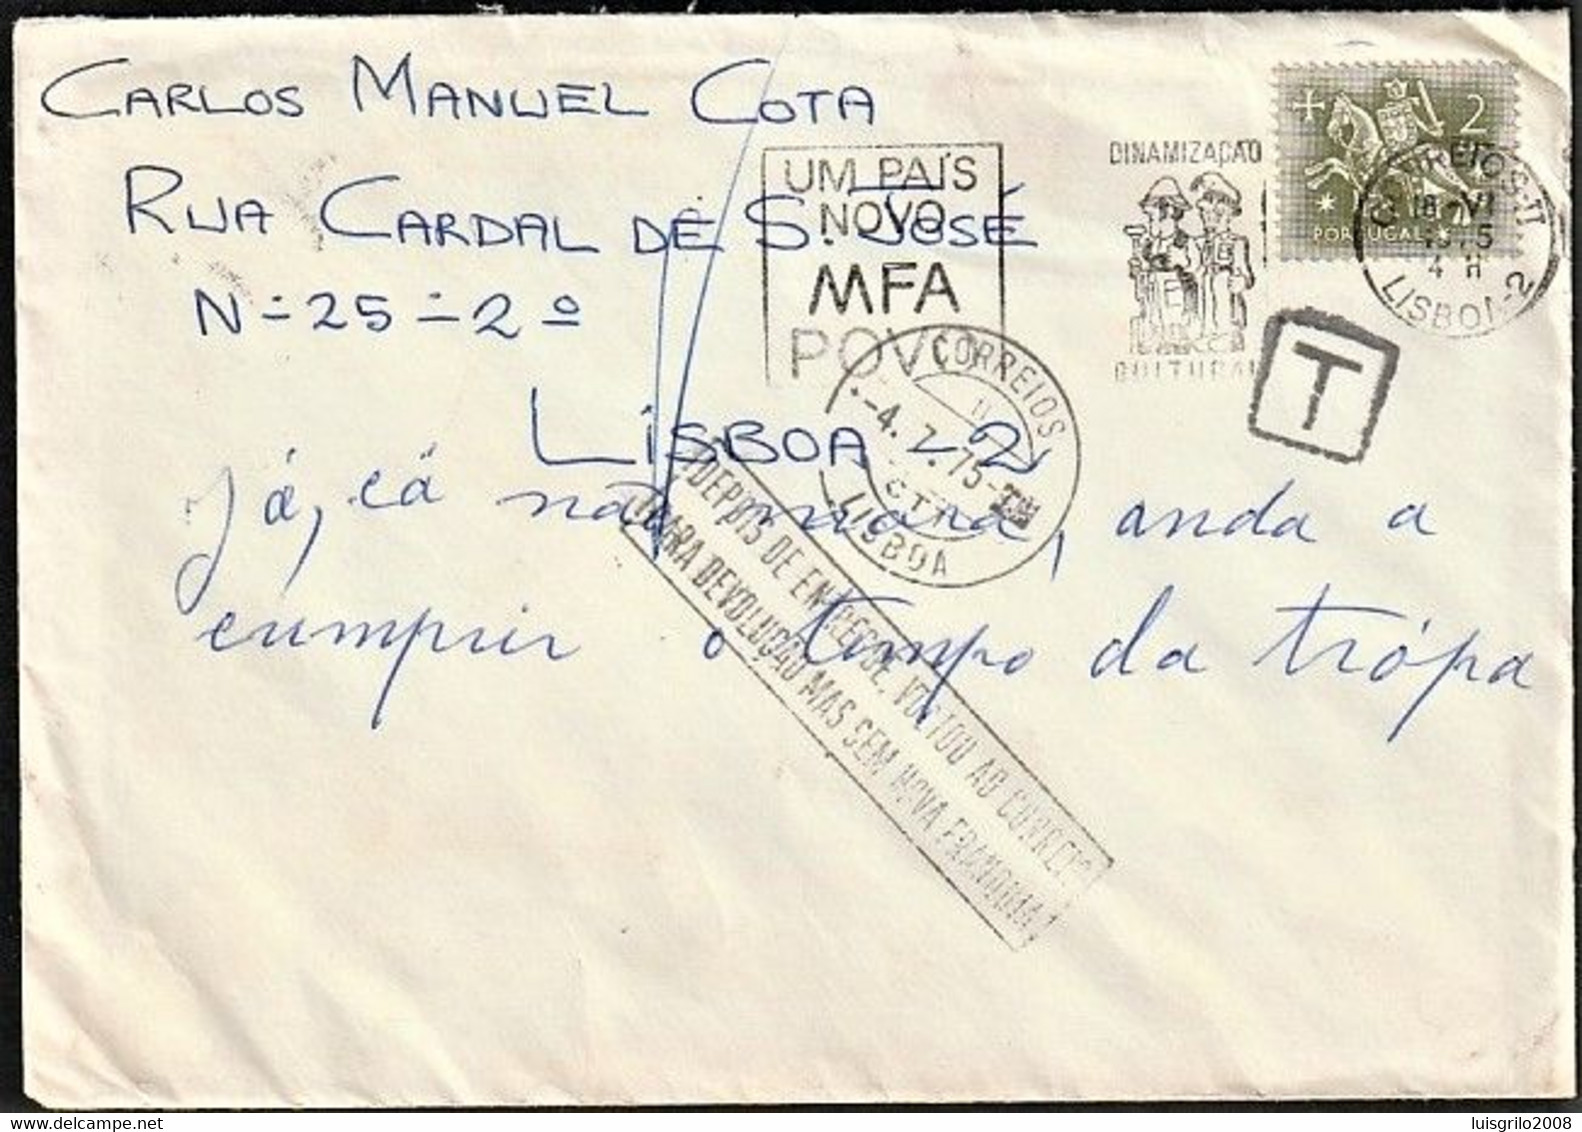 CARLOS MANUEL COTA
RUA CARDAL DE S. JOSÉ
N-25-2º
LISBOA-2
Já, cá não mora, anda a
cumprir o tempo da trópa
UM PAÍS
NOVO
MFA
POVO
DINAMIZAÇÃO
CULTURAL
2
PORTUGAL
CORREIOS-II
18-VI
1975
4 H
LISBOA-2
T
CORREIOS
-4.7.75-
CTT
LISBOA
DEPOIS DE ENTREGUE, VOLTOU AO CORREIO
PARA DEVOLUÇÃO MAS SEM NOVA FRANQUIA
luisgrilo2008